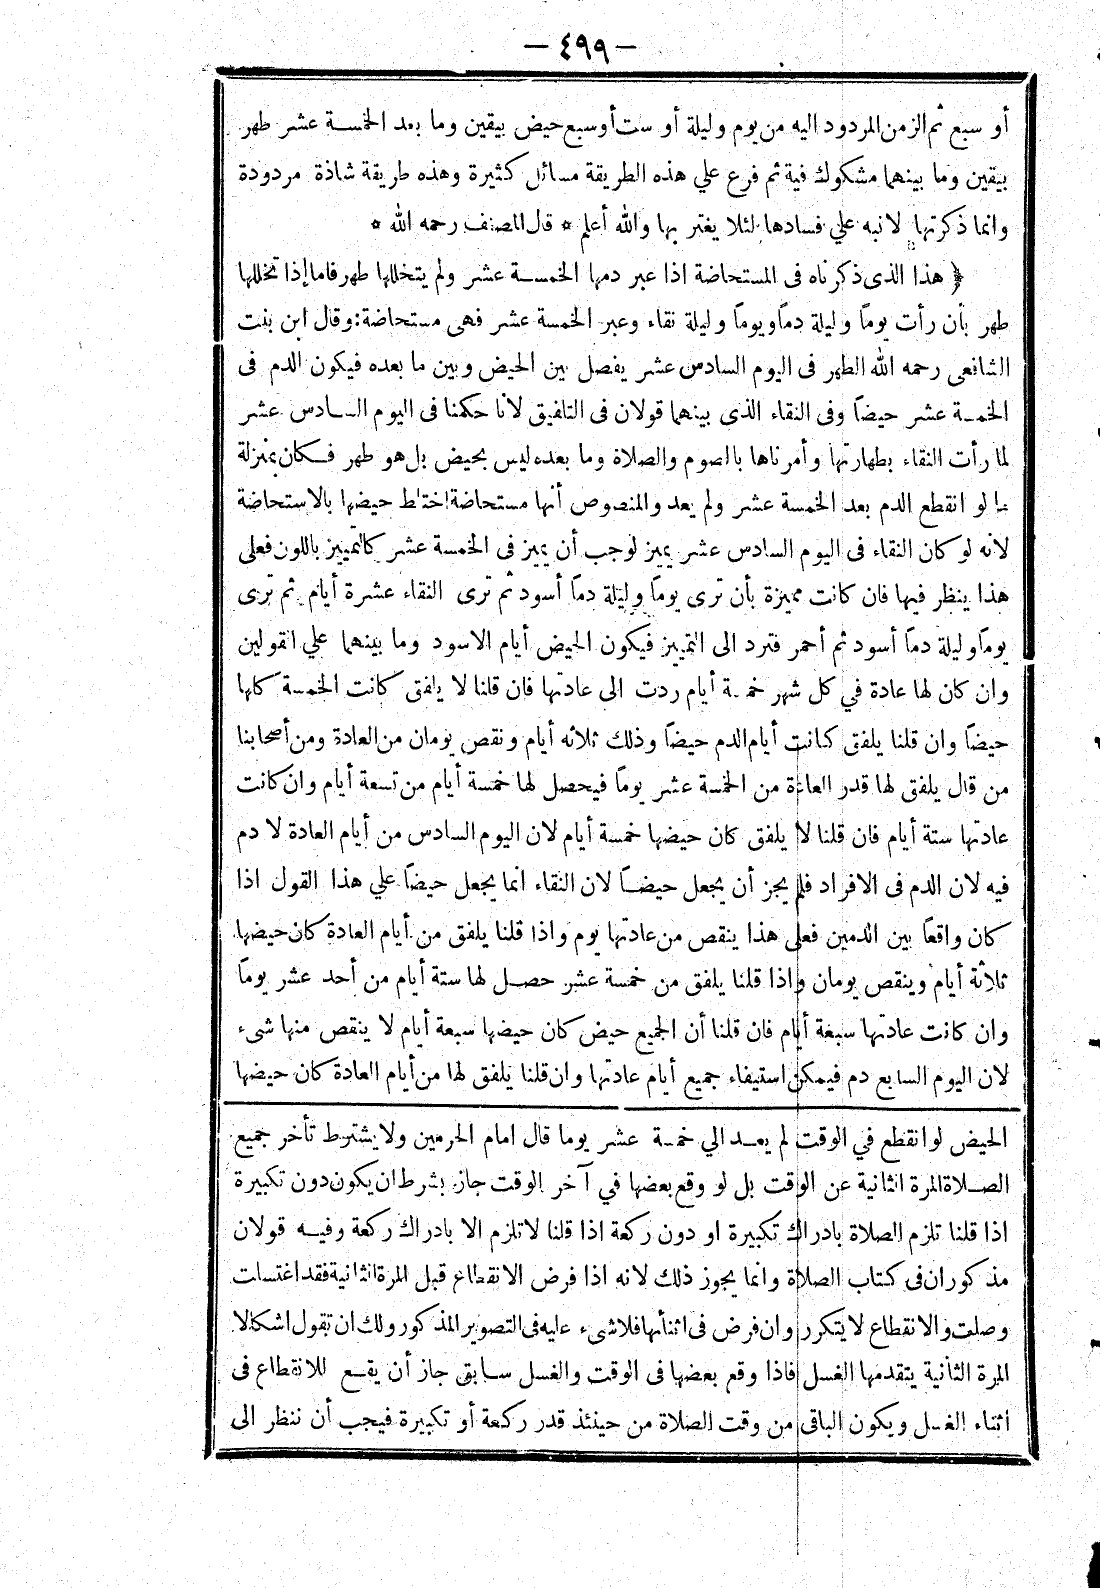 — ٤٩٩ —
أو سبع ثم الزمن المردود اليه من يوم وليلة أو ست أو سبع حيض بيقين وما بعد الخمسة عشر طهر
بيقين وما بينهما مشكوك فية ثم فرع علي هذه الطريقة مسائل كثيرة وهذه طريقة شاذة مردودة
وانما ذكرتها لانبه علي فسادها لئلا يغتر بها والله أعلم * قال المصنف رحمه الله *
﴿ هذا الذى ذكرناه فى المستحاضة اذا عبر دمها الخمسة عشر ولم يتخللها طهر فاما إذا تخللها
طهر بأن رأت يومًا وليلة دمًا ويومًا وليلة نقاء وعبر الخمسة عشر فهى مستحاضة: وقال ابن بنت
الشافعى رحمه الله الطهر فى اليوم السادس عشر يفصل بين الحيض وبين ما بعده فيكون الدم فى
الخمسة عشر حيضًا وفى النقاء الذى بينهما قولان فى التلفيق لأنا حكمنا فى اليوم السادس عشر
لما رأت النقاء بطهارتها وأمرناها بالصوم والصلاة وما بعده ليس بحيض بل هو طهر فكان بمنزلة
ما لو انقطع الدم بعد الخمسة عشر ولم يعد والمنصوص أنها مستحاضة اختلط حيضها بالاستحاضة
لأنه لو كان النقاء فى اليوم السادس عشر يميز لوجب أن يميز فى الخمسة عشر كالتمييز باللون فعلى
هذا ينظر فيها فان كانت مميزة بأن ترى يومًا وليلة دمًا أسود ثم ترى النقاء عشرة أيام ثم ترى
يومًا وليلة دمًا أسود ثم أحمر فترد الى التمييز فيكون الحيض أيام الاسود وما بينهما علي القولين
وان كان لها عادة في كل شهر خمسة أيام ردت الى عادتها فان قلنا لا يلفق كانت الخمسة كلها
حيضًا وان قلنا يلفق كانت أيام الدم حيضًا وذلك ثلاثه أيام ونقص يومان من العادة ومن أصحابنا
من قال يلفق لها قدر العادة من الخمسة عشر يومًا فيحصل لها خمسة أيام من تسعة أيام وان كانت
عادتها ستة أيام فان قلنا لا يلفق كان حيضها خمسة أيام لان اليوم السادس من أيام العادة لا دم
فيه لان الدم فى الافراد فلم يجز أن يجعل حيضًا لان النقاء انما يجعل حيضًا علي هذا القول اذا
كان واقعًا بين الدمين فعلى هذا ينقص من عادتها يوم واذا قلنا يلفق من أيام العادة كان حيضها
ثلاثة أيام وينقص يومان واذا قلنا يلفق من خمسة عشر حصل لها ستة أيام من أحد عشر يومًا
وان كانت عادتها سبعة أيام فان قلنا أن الجميع حيض كان حيضها سبعة أيام لا ينقص منها شىء
لان اليوم السابع دم فيمكن استيفاء جميع أيام عادتها وان قلنا يلفق لها من أيام العادة كان حيضها
الحيض لو انقطع في الوقت لم يعد الي خمسة عشر يوما قال امام الحرمين ولا يشترط تأخر جميع
الصلاة المرة الثانية عن الوقت بل لو وقع بعضها في آخر الوقت جاز بشرط ان يكون دون تكبيرة
اذا قلنا تلزم الصلاة بادراك تكبيرة او دون ركعة اذا قلنا لا تلزم الا بادراك ركعة وفيه قولان
مذكوران فى كتاب الصلاة وانما يجوز ذلك لانه اذا فرض الانقطاع قبل المرة الثانية فقد اغتسلت
وصلت والانقطاع لا يتكرر وان فرض فى اثنائها فلا شىء عليه فى التصوير المذكور ولك ان تقول اشكالا
المرة الثانية يتقدمها الغسل فاذا وقع بعضها فى الوقت والغسل سابق جاز أن يقع للانقطاع فى
اثناء الغسل ويكون الباقى من وقت الصلاة من حينئذ قدر ركعة أو تكبيرة فيجب أن ننظر الى